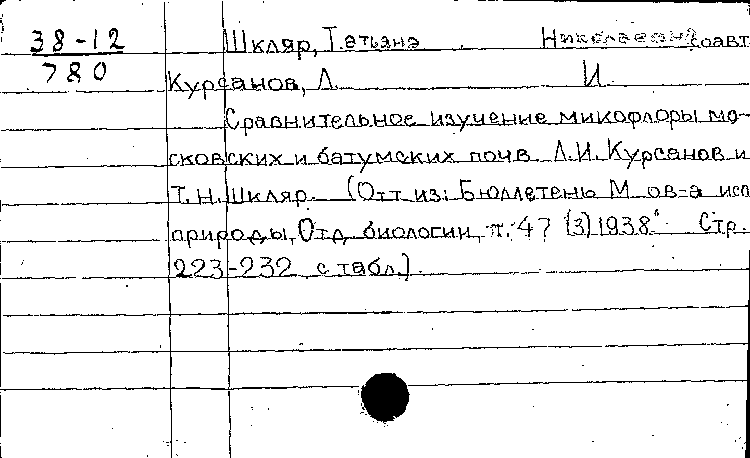 38-12 Шкляр, Татьяна Николаевна соавт
780 Курсанов, Л. И.
Сравнительное изучение микофлоры мо-
сковских и батумских почв Л.И. Курсанов и
Т.Н. Шкляр. (Отт из: Бюллетень М ов-а исп
природы, Отд биологии, т. 47 (3) 1938. Стр.
223-232 с табл.)